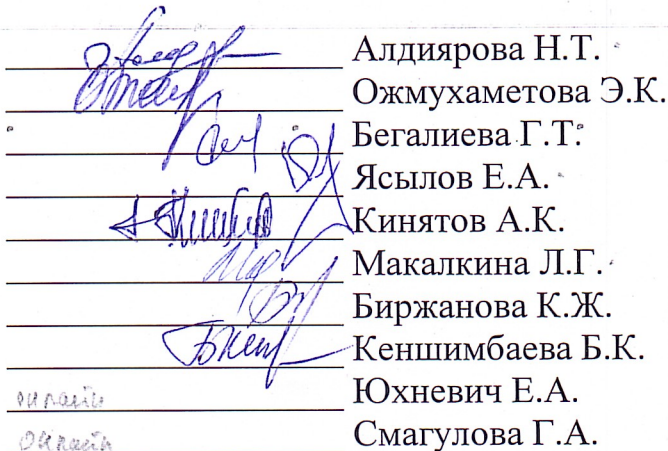 Алдиярова Н.Т.
Ожмухаметова Э.К.
Бегалиева Г.Т.
Ясылов Е.А.
Кинятов А.К.
Макалкина Л.Г.
Биржанова К.Ж.
Кеншимбаева Б.К.
Юхневич Е.А.
Смагулова Г.А.